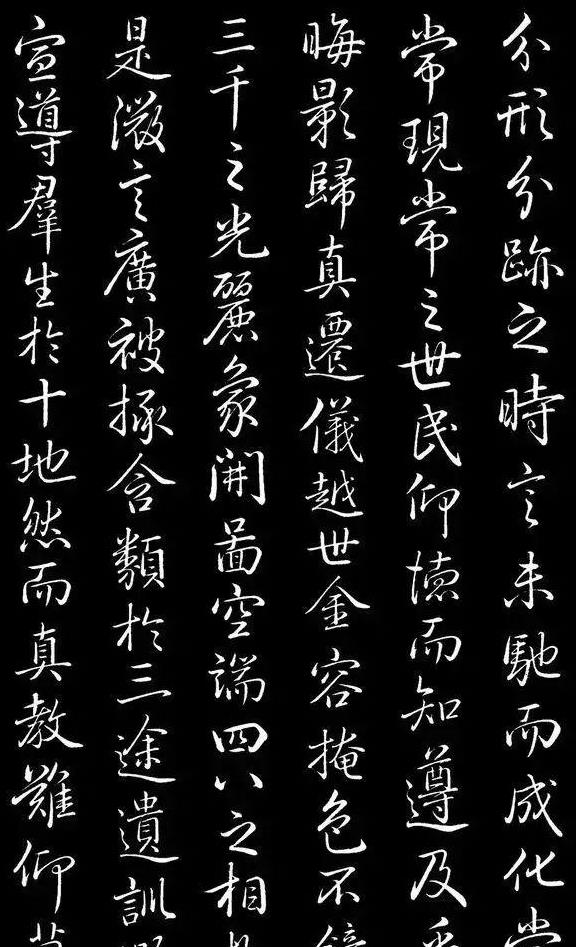 分形分跡之時言未馳而成化當
常現常之世民仰德而知遵及乎
晦影歸真遷儀越世金容掩色不鏡
三千之光麗象開圖空端四八之相於
是微言廣被拯含類於三途遺訓
宣導羣生於十地然而真教難仰莫